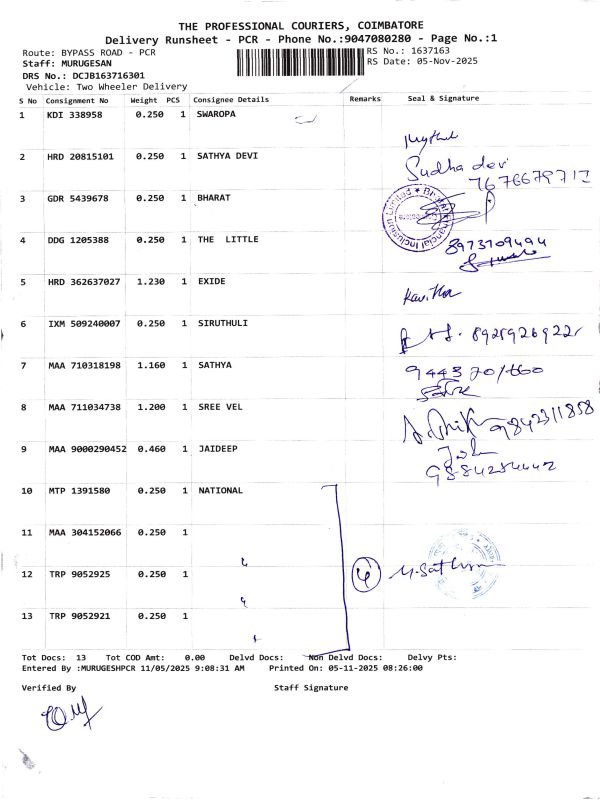 THE PROFESSIONAL COURIERS, COIMBATORE
Delivery Runsheet - PCR - Phone No.:9047080280 - Page No.:1
Route: BYPASS ROAD - PCR RS No.: 1637163
Staff: MURUGESAN RS Date: 05-Nov-2025
DRS No.: DCJB163716301
Vehicle: Two Wheeler Delivery
S No Consignment No Weight PCS Consignee Details Remarks Seal & Signature
1 KDI 338958 0.250 1 SWAROPA
2 HRD 20815101 0.250 1 SATHYA DEVI Sudha devi
7676679717
3 GDR 5439678 0.250 1 BHARAT
4 DDG 1205388 0.250 1 THE LITTLE 8973709494
5 HRD 362637027 1.230 1 EXIDE Kavitha
6 IXM 509240007 0.250 1 SIRUTHULI
7 MAA 710318198 1.160 1 SATHYA
8 MAA 711034738 1.200 1 SREE VEL 9842311858
9 MAA 9000290452 0.460 1 JAIDEEP
10 MTP 1391580 0.250 1 NATIONAL
11 MAA 304152066 0.250 1
12 TRP 9052925 0.250 1 4
13 TRP 9052921 0.250 1
Tot Docs: 13 Tot COD Amt: 0.00 Delvd Docs: Non Delvd Docs: Delvy Pts:
Entered By :MURUGESHPCR 11/05/2025 9:08:31 AM Printed On: 05-11-2025 08:26:00
Verified By Staff Signature